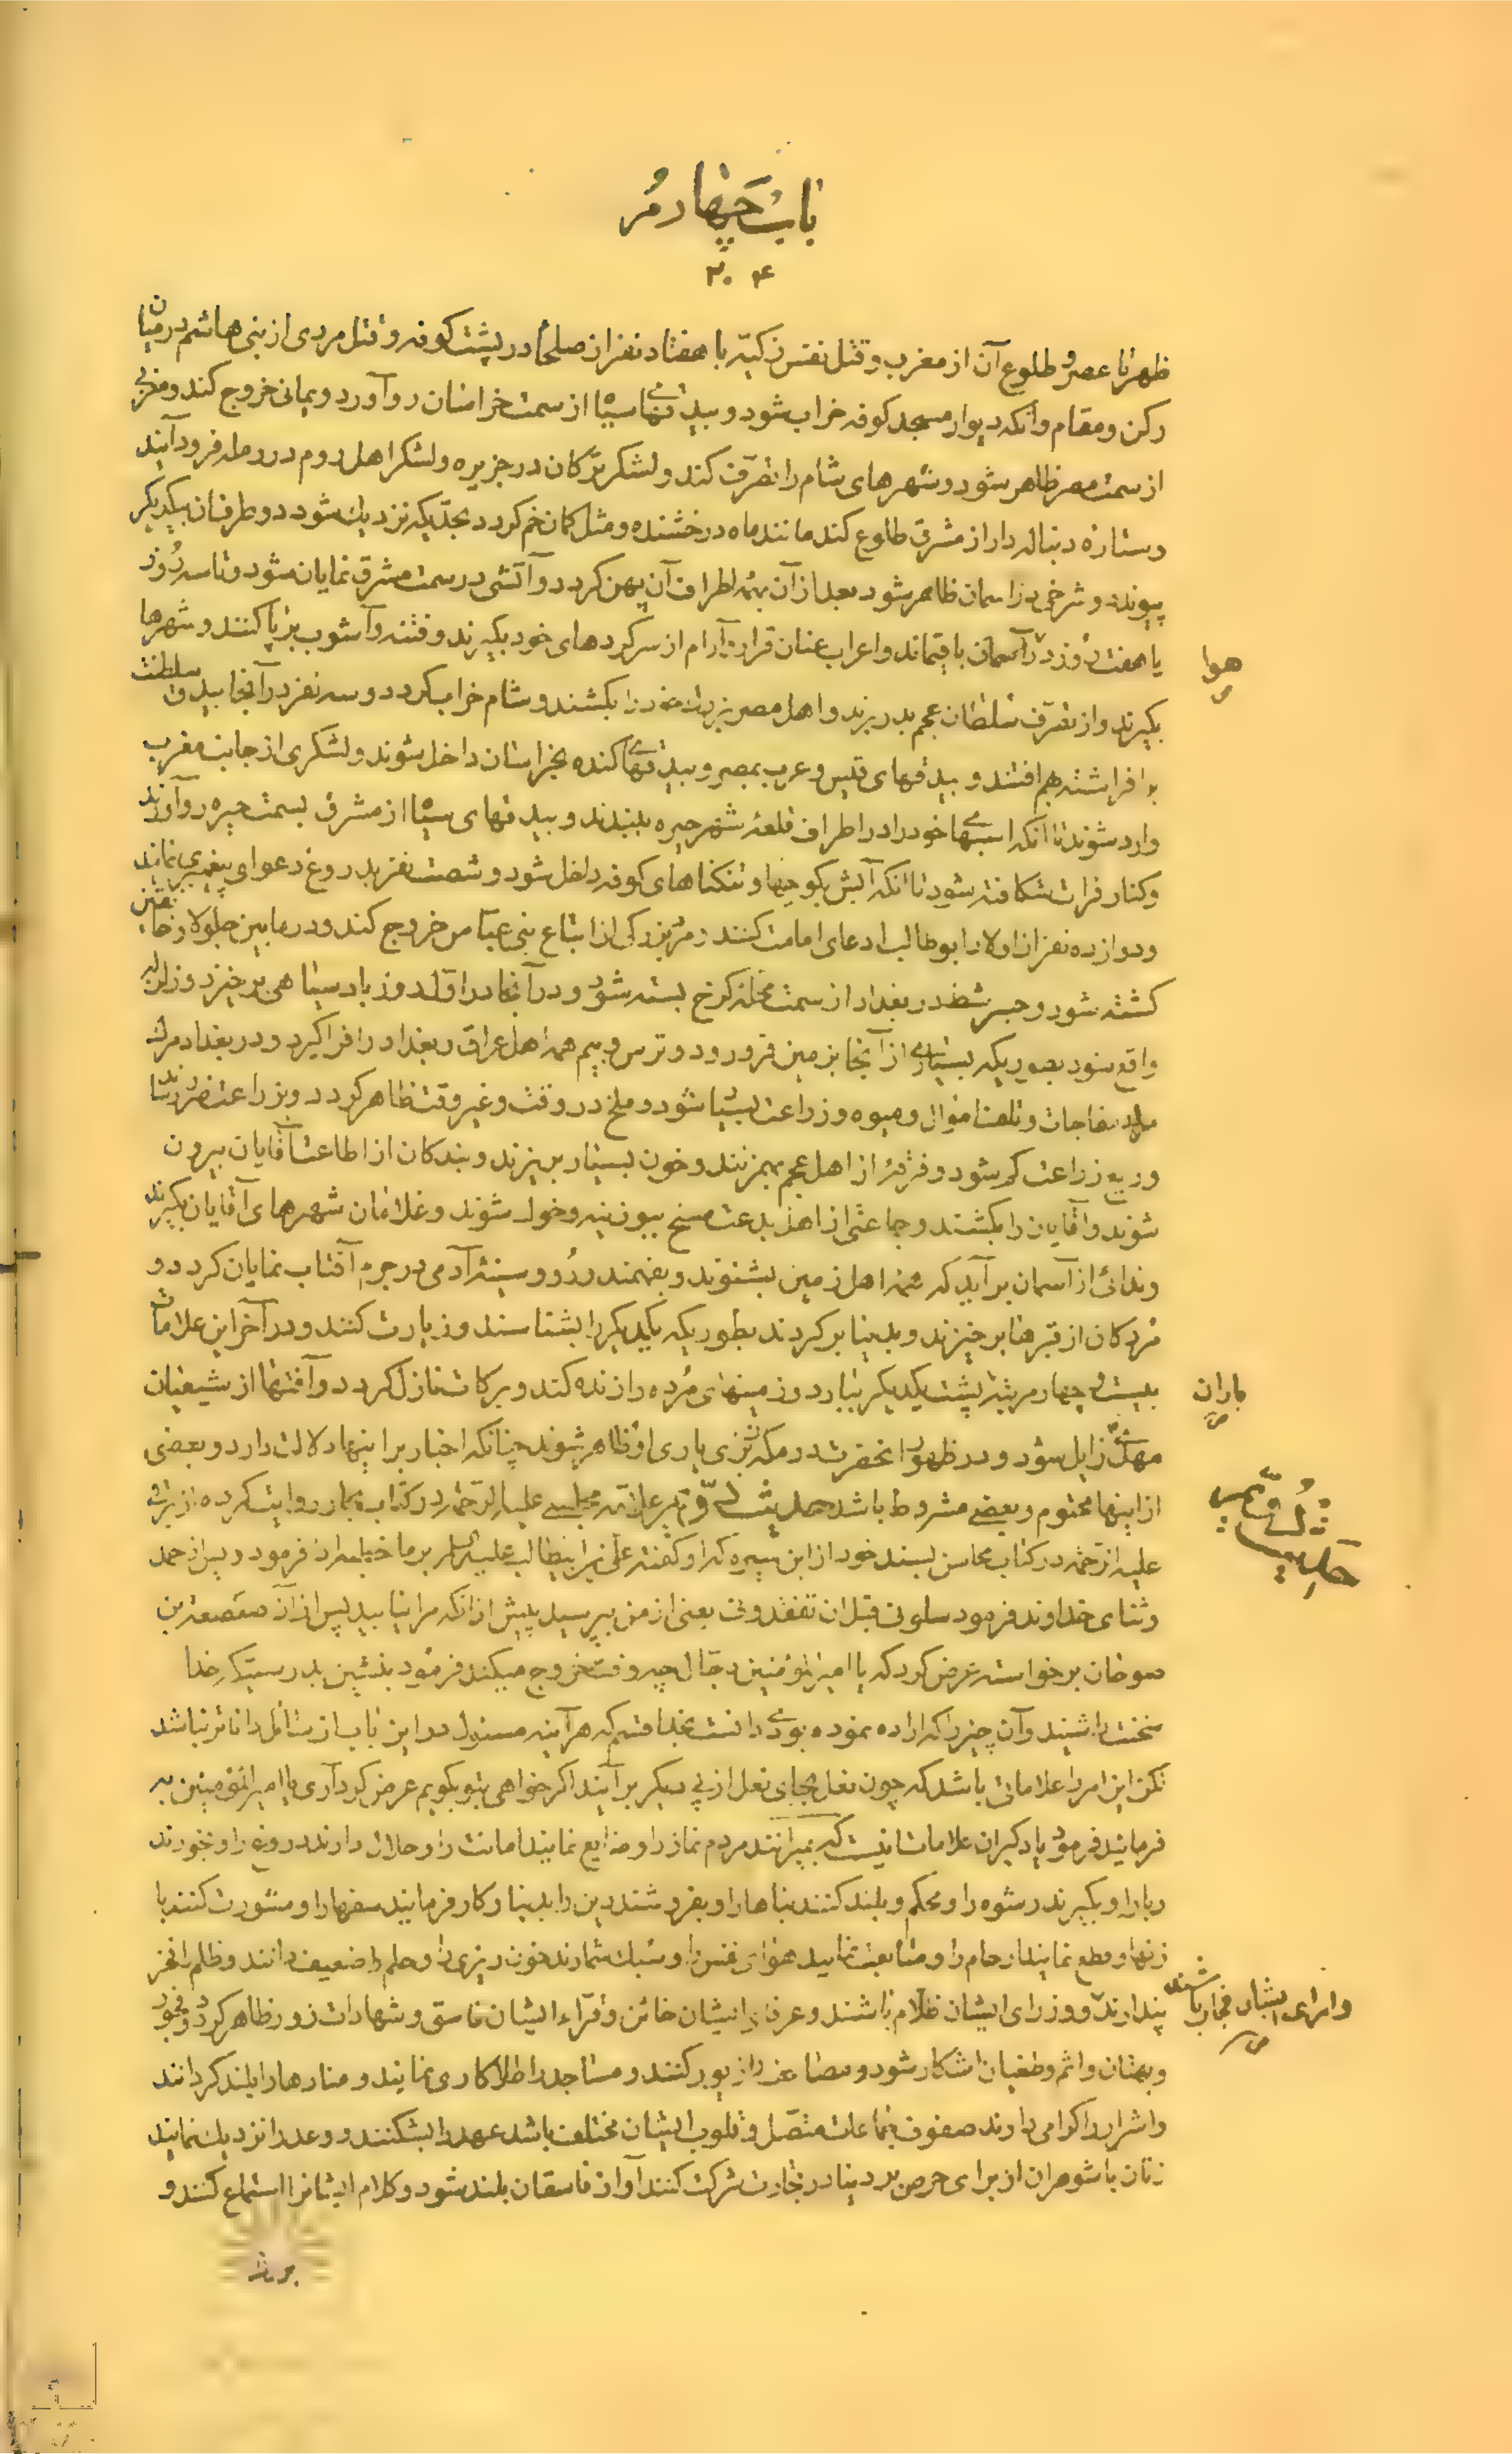 باب چهارم
۳۰۴
ظهر تا عصر و طلوع آن از مغرب و قتل نفس زکیّه با هفتاد نفر از صلحا در پشت کوفه و قتل مردی از بنی هاشم در میان
رکن و مقام و آنکه دیوار مسجد کوفه خراب شود و بیدقهای سیاه از سمت خراسان رو آورد و یمانی خروج کند و مغربی
از سمت مصر ظاهر شود و شهرهای شام را تصرّف کند و لشکر ترکان در جزیره و لشکر اهل روم در رمله فرود آیند
و ستاره دنباله دار از مشرق طلوع کند مانند ماه درخشنده و مثل کمان خم کردد بحدّیکه نزدیك شود دو طرفان بیکدیکر
پیوندد و سرخی در آسمان ظاهر شود بعد از آن بهمهٔ اطراف آن پهن کردد و آتشی در سمت مشرق نمایان شود و تا سه روز
یا هفت روز در آسمان باقیماند و اعراب عنان قرار و آرام از سرکردهای خود بکیرند و فتنه و آشوب برپا کنند و شهرها
هوا
بکیرند و از تصرّف سلطان عجم بدر برند و اهل مصر بزرك خود را بکشند و شام خراب کردد و سه نفر در آنجا بیدق سلطنت
بر افراشته بهم افتند و بیدقهای قیس و عرب بمصر و بیدقهای کنده بخراسان داخل شوند و لشکری از جانب مغرب
وارد شوند تا آنکه اسبهای خود را در اطراف قلعهٔ شهر حیره ببندند و بیدقهای سیاه از مشرق بسمت حیره رو آورند
و کنار فرات شکافته شود تا آنکه آبش بکوچها و تنکناهای کوفه داخل شود و شصت نفر بدروغ دعوای پیغمبری نمایند
و دوازده نفر از اولاد ابوطالب ادعای امامت کنند و مرد بزرکی از اتباع بنی عبّاس خروج کند و در مابین جلولا و خانقین
کشته شود و جسر شط در بغداد از سمت محلهٔ کرخ بسته شود و در آنجا در اوّلدوز باد سیاهی برخیزد و زلزله
واقع شود بطوریکه بسیاری از آنجا بزمین فرو رود و ترس و بیم همه اهل عراق و بغداد را فرا کیرد و در بغداد مرك
مفاجات و تلف اموال و میوه و زراعت بسیار شود و ملخ در وقت و غیر وقت ظاهر کردد و بزراعت ضرر رساند
و ریع زراعت کم شود و دو فرقهٔ از اهل عجم بهم زنند و خون بسیار بریزند و بندکان از اطاعت آقایان بیرون
شوند و آقایان را بکشند و جماعتی از اهل بدعت مسخ ببوزینه و خوك شوند و غلامان شهرهای آقایان بکیرند
و ندائی از آسمان برآید که همهٔ اهل زمین بشنوند و بفهمند و رو و سینهٔ آدمی در جرم آفتاب نمایان کردد و
مردکان از قبرها برخیزند و بدنیا برکردند بطوریکه یکدیکر را بشناسند و زیارت کنند و در آخر این علامات
بیست و چهار مرتبه پشت یکدیکر ببارد و زمینهای مرده را زنده کند و برکات نازل کردد و آفتها از شیعیان
باران
مهدی زایل شود و در ظهور آنحضرت در مکه بزی یاری او ظاهر شوند چنانکه اخبار بر اینها دلالت دارد و بعضی
از اینها محتوم و بعضی مشروط باشد حدیث سی و پنجم علامه مجلسی علیه الرحمه در کتاب بحار روایت کرده از برقی
حدیث سی و پنجم
علیه الرحمه در کتاب محاسن بسند خود از ابن سبره که او کفته علی بن ابیطالب علیه السلام بر ما خطبه ادا فرمود و پس از حمد
و ثنای خداوند فرمود سلونی قبل ان تفقدونی یعنی از من بپرسید پیش از آنکه مرا نیابید پس از آن صعصعة بن
صوحان برخواسته عرض کرد که یا امیر المؤمنین دجّال چه وقت خروج میکند فرمود بنشین بدرستیکه خدا
سخنت را شنید و آن چیزیرا که اراده نموده بودی دانست بخدا قسم که هر آینه مسئول در این باب از سائل داناتر نباشد
لکن این امر را علاماتی باشد که چون نعل بجای نعل از پی یکدیکر برآیند اکر خواهی بتو بکویم عرض کرد آری یا امیر المؤمنین
فرمایند فرمود یاد کیر آن علامات اینست که بمیرانند مردم نماز را و ضایع نمایند امانت را و حلال دارند دروغ را و بخورند
ربا را و بکیرند رشوه را و محکم و بلند کنند بناها را و بفروشند دین را بدنیا و کار فرمایند سفها را و مشورت کنند با
زنها و قطع نمایند ارحام را و متابعت نمایند هوای نفس را و سبك شمارند خونریزی را و حلم را ضعیف دانند و ظلم را فخر
پندارند و وزرای ایشان ظلّام باشند و عرفای ایشان خائن و قرّاء ایشان فاسق و شهادات زور ظاهر کردد و فجور
و امرای ایشان فجار باشند
و بهتان و اثم و طغیان آشکار شود و مصاحف را زیور کنند و مساجد را طلاکاری نمایند و منارها را بلند کردانند
و اشرار را کرامی دارند صفوف جماعات متصّل و قلوب ایشان مختلف باشد عهد را بشکنند و وعد را نزدیك نمایند
زنان با شوهران از برای حرص بر دنیا در تجارت شرکت کنند آواز فاسقان بلند شود و کلام ایشانرا استماع کنند و